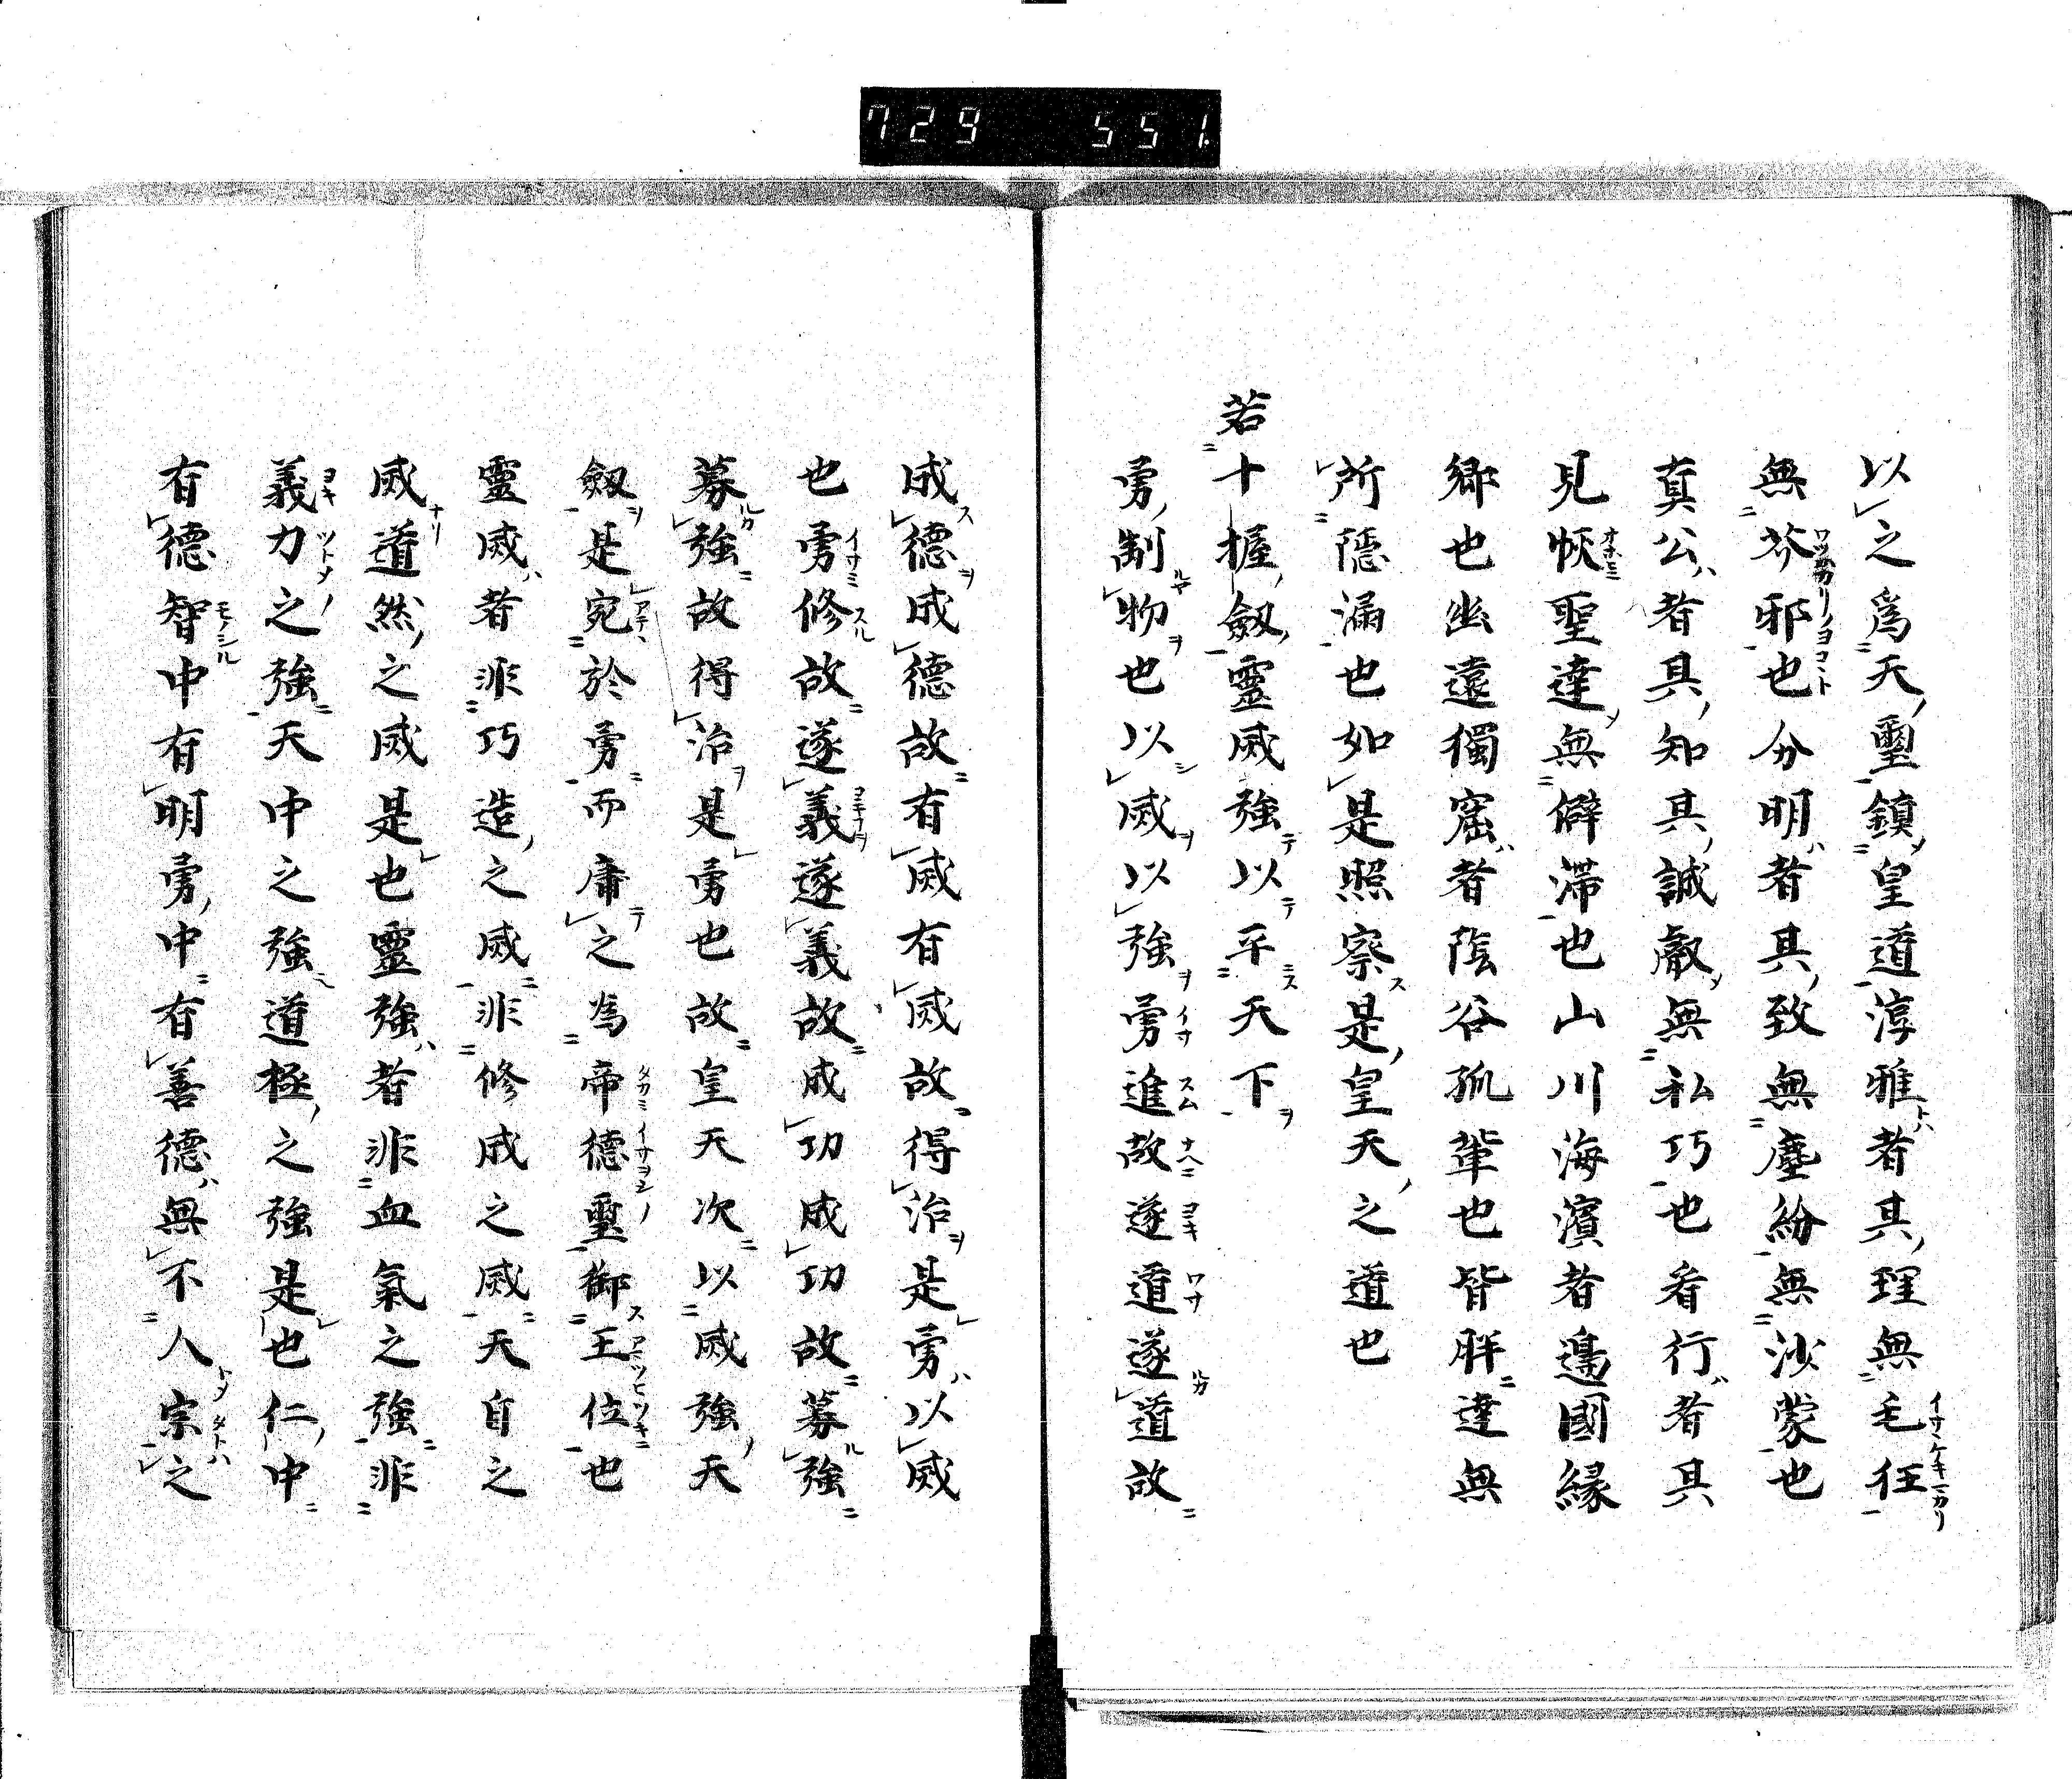 729 551.
以之爲天璽鎮皇道淳雅者其理無毛狂
無芥邪也分明者其致無塵紛無沙蒙也
真公者具知其誠叡無私巧也看行者具
見恢聖達無僻滞也山川海濱者邊國縁
郷也幽遠獨窟者陰谷孤輩也皆胖達無
所隱漏也如是照察是皇天之道也
若十握劔靈威強以平天下
勇制物也以威以強勇進故遂道遂道故
成德成德故有威有威故得治是勇以威
也勇修故遂義遂義故成功成功故募強
募強故得治是勇也故皇天次以威強天
劔是宛於勇而庸之爲帝德璽御王位也
靈威者非巧造之威非修成之威天自之
威道然之威是也靈強者非血氣之強非
義力之強天中之強道極之強是也仁中
有德智中有明勇中有善德無不人宗之